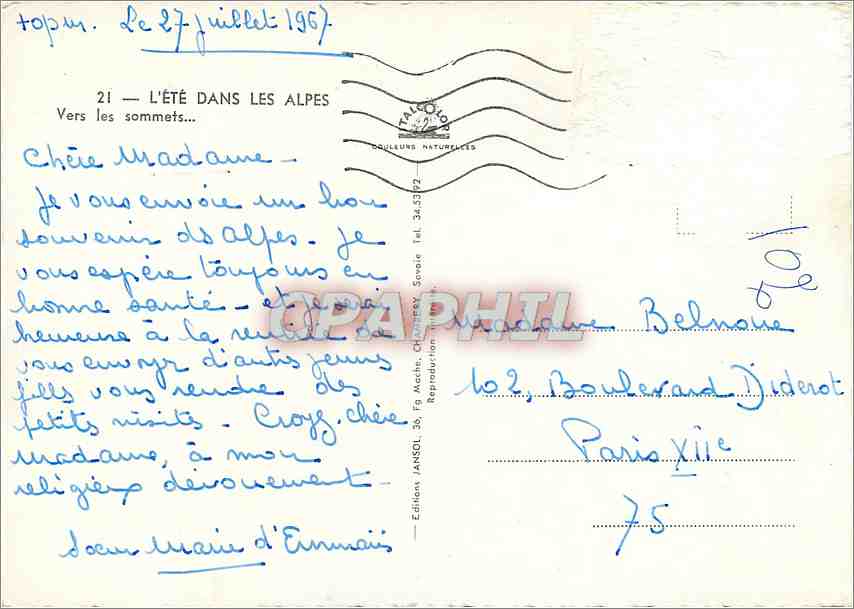 +opm. Le 27 juillet 1967
21 — L'ÉTÉ DANS LES ALPES
Vers les sommets...
ITALCOLOR
COULEURS NATURELLES
Chère Madame -
Je vous envoie un bon
souvenir ds Alpes - Je
vous espère toujours en
bonne santé - et serai
heureuse à la rentrée de
vous envoyer d'autres jeunes
filles vous rendre des
petites visites - Croyez, chère
Madame, à mon
religieux dévouement -
Soeur Marie d'Emmaüs
— Editions JANSOL, 36, Fg Mache, CHAMBÉRY, Savoie Tel. 34.53/92 —
Reproduction interdite.
CPAPHIL
Madame Belnoue
102, Boulevard Diderot
Paris XIIe
75